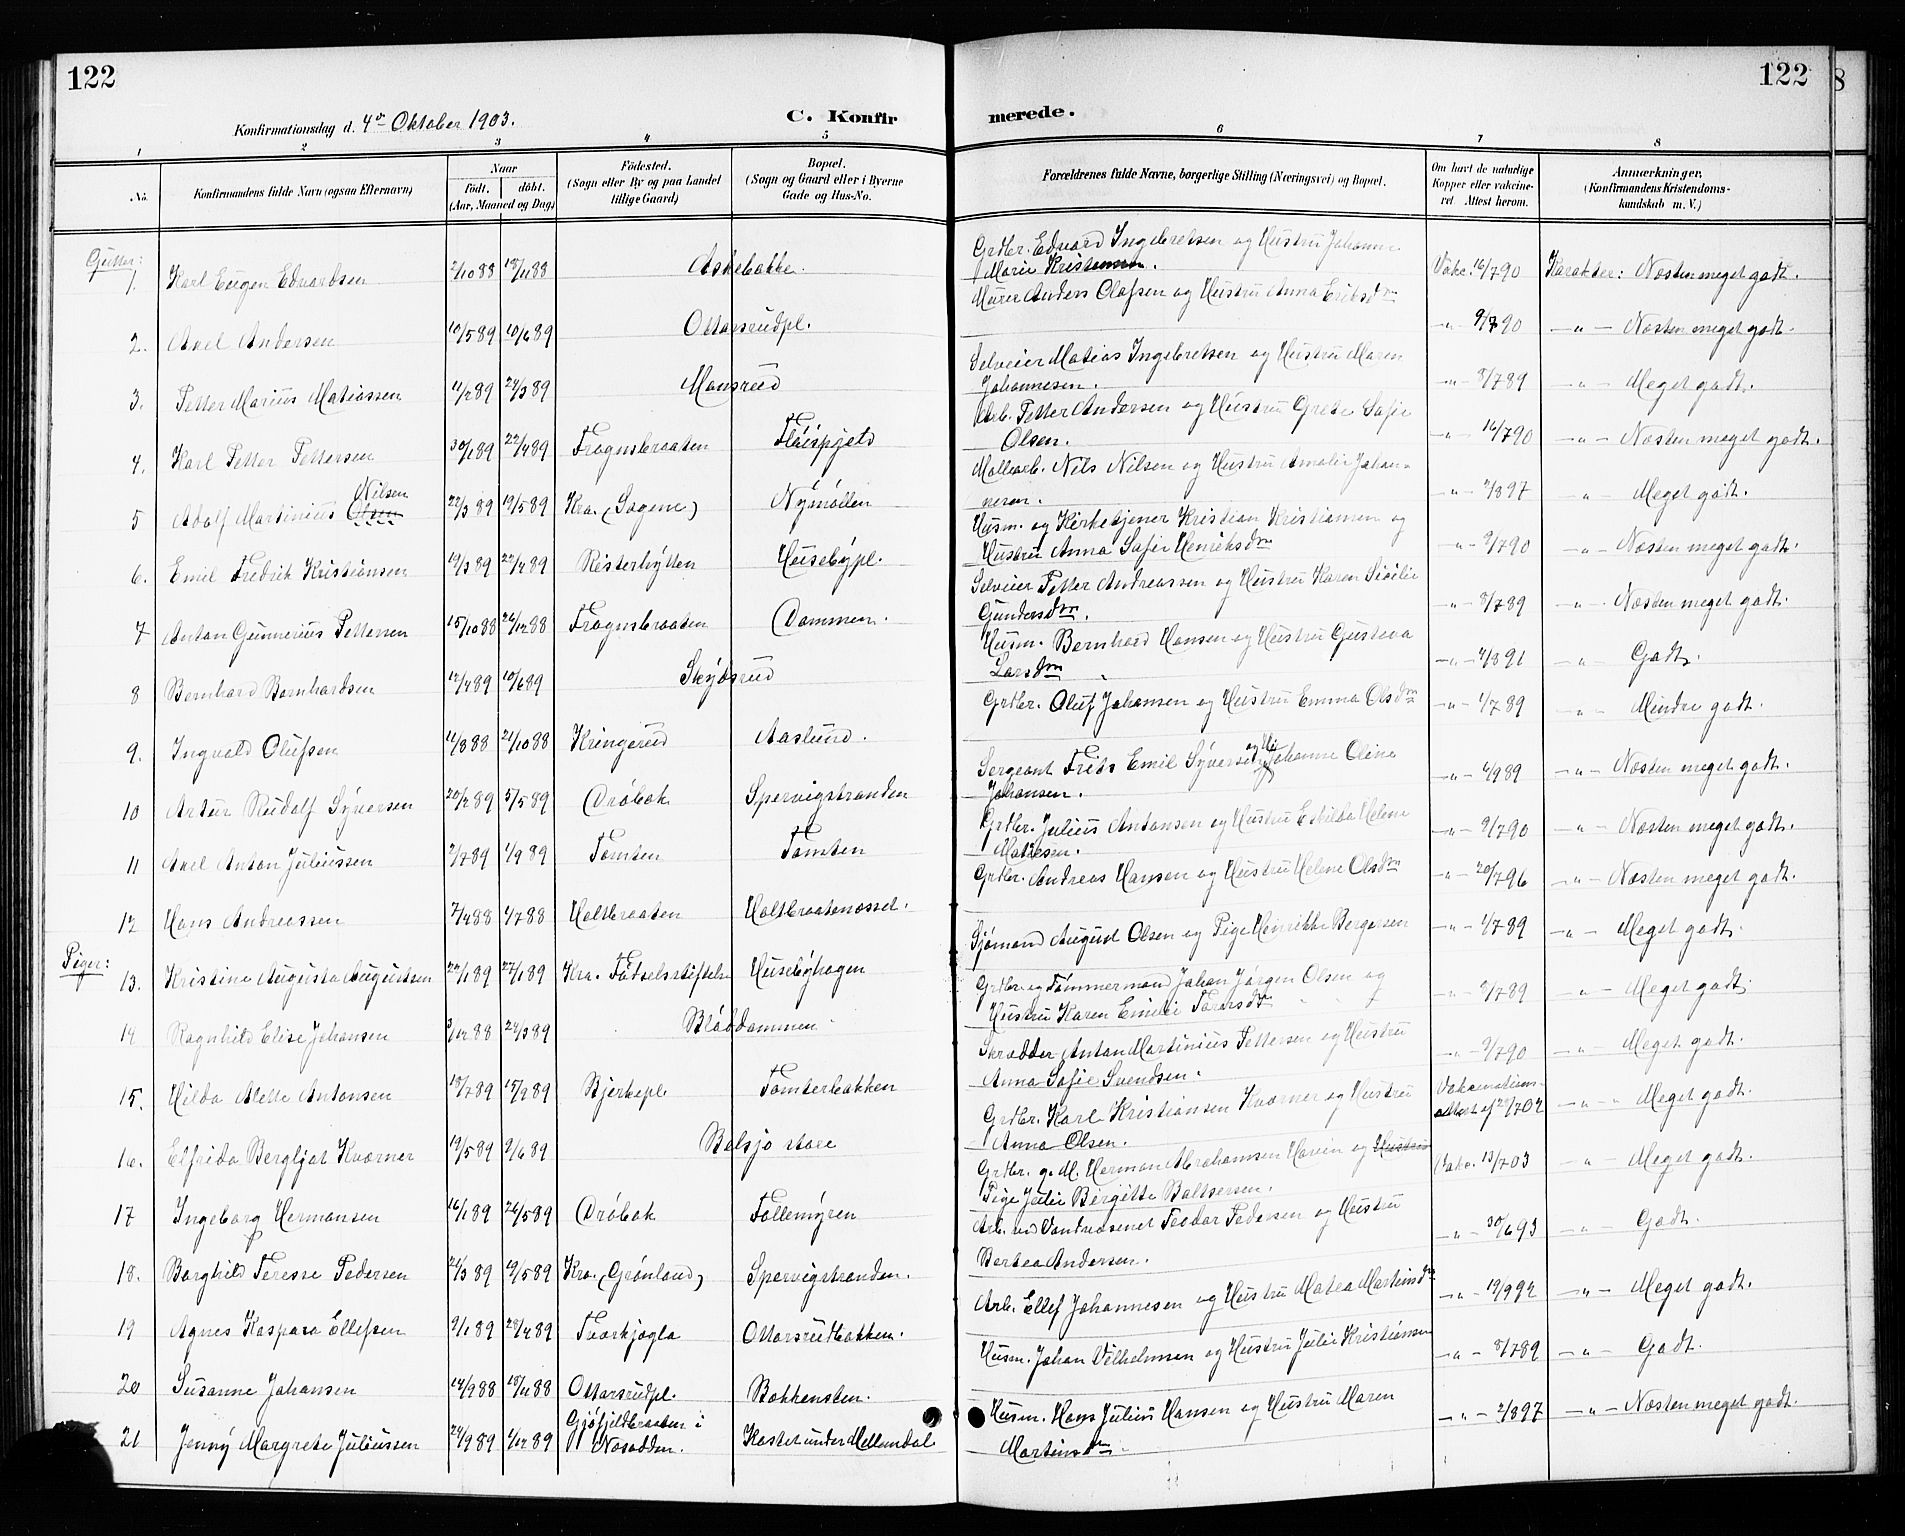 122
122
8
Konfirmationsdag d. 4de Oktober 1903.
C. Konfir
merede.
1 2 3 4 5 6 7 8
No.
Konfirmandens fulde Navn (ogsaa Efternavn)
Naar
Født. døbt.
(Aar, Maaned og Dag)
Fødested.
(Sogn eller By og paa Landet
tillige Gaard)
Bopæl.
(Sogn og Gaard eller i Byerne
Gade og Hus-No.
Forældrenes fulde Navne, borgerlige Stilling (Næringsvei) og Bopæl.
Om havt de naturlige
Kopper eller vakcine-
ret. Attest herom.
Anmærkninger,
(Konfirmandens Kristendoms-
kundskab m. V.)
Gutter:
1. Karl Eugen Edvardsen 2/10 88 18/11 88 Askebakke. Grdbr. Edvard Ingebretsen og Hustru Johanne
Marie Kristensen. Vakc. 16/7 90 Karakter: Næsten meget godt.
2. Axel Andersen 10/5 89 10/6 89 Ottarsrudpl. Murer Anders Olafsen og Hustru Anna Eriksdtr -"- 9/7 90 -"- Næsten meget godt.
3. Petter Marius Matiassen 11/2 89 24/3 89 Mansrud Selveier Matias Ingebretsen og Hustru Maren
Johannesen. -"- 8/7 89 -"- Meget godt.
4. Karl Petter Pettersen 30/1 89 22/4 89 Frognsbraaten Arb. Petter Andersen og Hustru Grete Sofie
Olsen. -"- 16/7 90 -"- Næsten meget godt.
5 Adolf Martinius Olsen Nilsen 22/3 89 19/5 89 Kra. (Sagene) Nymøllen Møllearb. Nils Nilsen og Hustru Amalie Johan-
nesen. -"- 2/8 97 -"- Meget godt.
6. Emil Fredrik Kristiansen 19/3 89 22/4 89 Risterhytten Husebypl. Husm. og Kirketjener Kristian Kristiansen og
Hustru Anna Sofie Henriksdtr -"- 9/7 90 -"- Næsten meget godt.
7 Anton Gunnerius Pettersen 15/10 88 26/12 88 Frognsbraaten Dammen. Selveier Petter Andreassen og Hustru Karen Sicilie
Gundersdtr. -"- 8/7 89 -"- Næsten meget godt.
8 Bernhard Bernhardsen 12/4 89 10/6 89 Skydsrud Husm. Bernhard Hansen og Hustru Gustava
Larsdtr -"- 4/8 91 -"- Godt.
9. Ingvald Olufsen 11/8 88 21/10 88 Kringerud Aaslund. Grdbr. Oluf Johansen og Hustru Emma Olsdtr -"- 1/7 89 -"- Mindre godt.
10 Artur Rudolf Syversen 20/2 89 5/5 89 Drøbak Spervigstranden Sergeant Frits Emil Syversen og Hu Johanne Oline
Johansen. -"- 6/9 89 -"- Næsten meget godt.
11 Axel Anton Juliussen 2/7 89 1/9 89 Tomten Tomten Grdbr. Julius Antonsen og Hustru Eskilda Helene
Matiesen. -"- 9/7 90 -"- Næsten meget godt.
12 Hans Andreassen 7/4 88 1/7 88 Holtbraaten Holtbraatenæsset. Grdbr. Andreas Hansen og Hustru Helene Olsdtr -"- 20/7 96 -"- Næsten meget godt.
Piger:
13. Kristine Augusta Augustsen 22/1 89 27/1 89 Kra. Fødselsstiftelse Husebyhagen Sjømand August Olsen og Pige Henrikke Bergersen -"- 1/7 89 -"- Meget godt.
14 Ragnhild Elise Johansen 3/12 88 24/3 89 Bløddammen Grdbr. og Tømmermand Johan Jørgen Olsen og
Hustru Karen Emilie Torarsdtr -"- 8/7 89 -"- Meget godt.
15. Hilda Alette Antonsen 18/7 89 15/9 89 Bjerkepl Tomterbakken Skrædder Anton Martinius Pettersen og Hustru
Anna Sofie Svendsen. -"- 9/7 90 -"- Meget godt.
16. Elfrida Bergljot Kværner 19/5 89 9/6 89 Bølsjø store Grdbr. Karl Kristiansen Kværner og Hustru
Anna Olsen. Vakcinations-
attest af 22/7 02 -"- Meget godt.
17 Ingeborg Hermansen 16/1 89 26/5 89 Drøbak Follemyren Grdbr. g. M. Herman Abrahamsen Haven og Hustru
Pige Julie Birgitte Baltsersen. Vakc. 13/7 03 -"- Meget godt.
18. Borghild Terese Pedersen 24/3 89 19/5 89 Kra. (Grønland) Spervigstranden. Arb. ved Vandvæsenet Teodor Pedersen og Hustru
Bertea Andersen. -"- 30/6 93 -"- Godt.
19 Agnes Kaspara Ellefsen 9/1 89 28/4 89 Torkjøgla Ottarsrudbakken. Arb. Ellef Johannesen og Hustru Matea Martinsdtr -"- 19/9 92 -"- Meget godt.
20 Susanne Johansen 14/9 88 18/11 88 Ottarsrudpl. Bakkensten. Husm. Johan Vilhelmsen og Hustru Julie Kristiansen -"- 8/7 89 -"- Godt.
21 Jenny Margrete Juliussen 24/9 89 1/12 89 Gjøfjeldbraaten i
Næsodden. Kastet under Mellemdal Husm. Hans Julius Hansen og Hustru Maren
Martinsdtr. -"- 2/8 97 -"- Næsten meget godt.